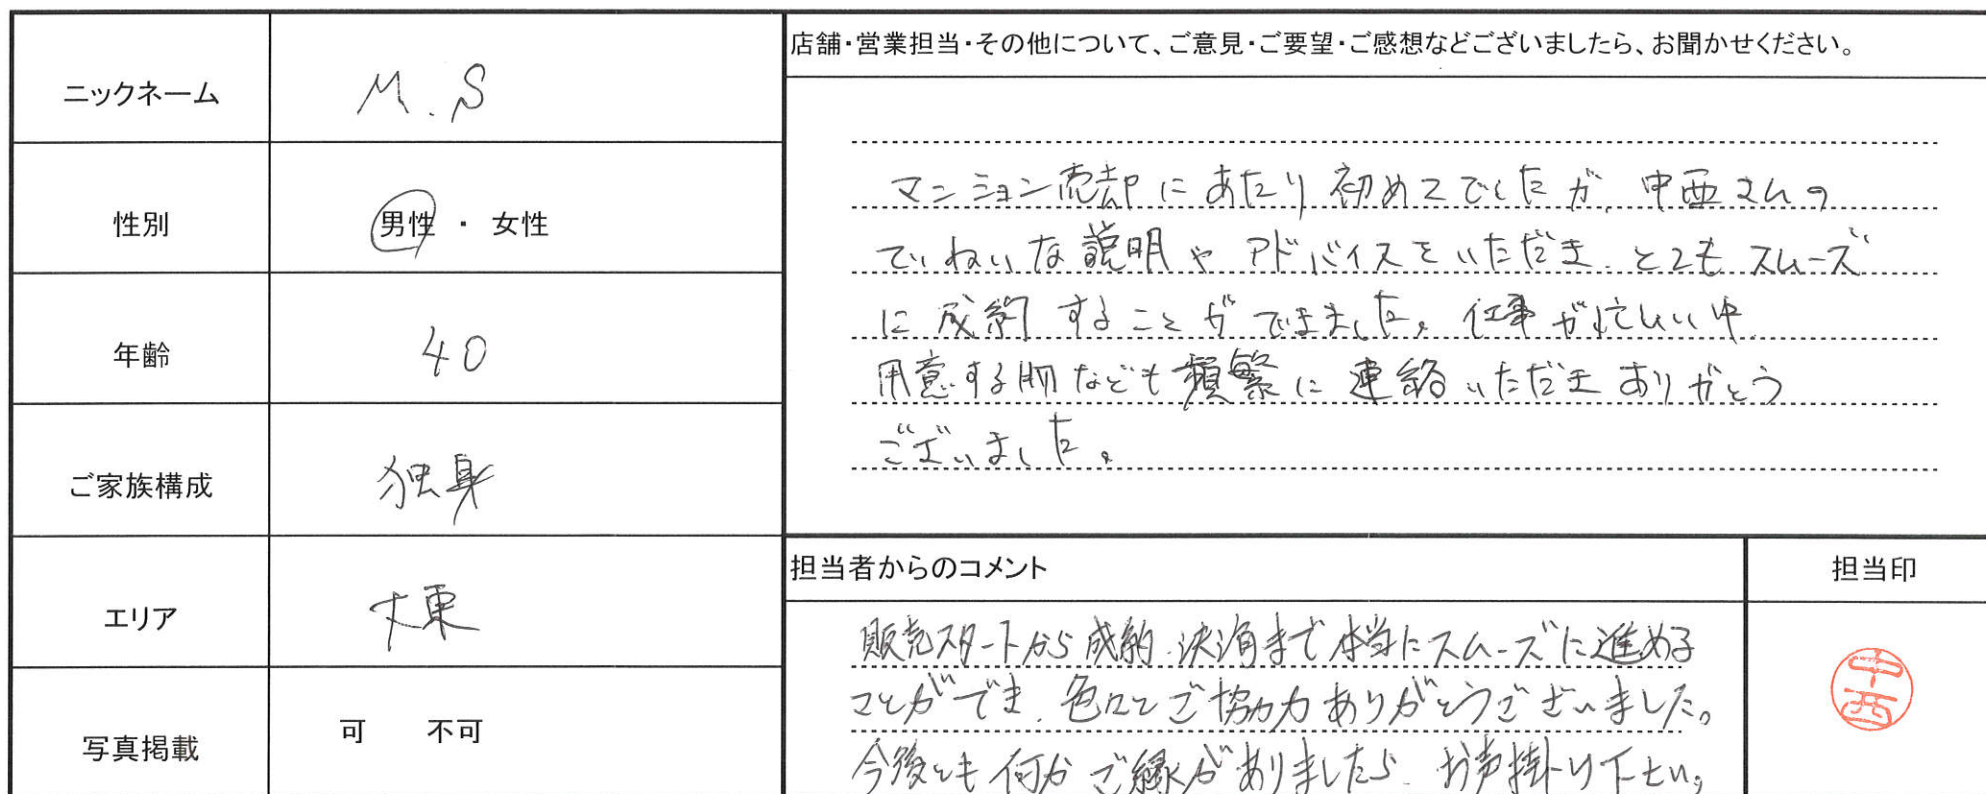 ニックネーム M.S
性別 男性 ・ 女性
年齢 40
ご家族構成 独身
エリア 大東
写真掲載 可 不可
店舗・営業担当・その他について、ご意見・ご要望・ご感想などございましたら、お聞かせください。
マンション売却にあたり初めてでしたが、中西さんの
ていねいな説明やアドバイスをいただき、とてもスムーズ
に成約することができました。仕事が忙しい中
用意する物なども頻繁に連絡いただきありがとう
ございました。
担当者からのコメント
担当印
販売スタートから成約、決済まで本当にスムーズに進める
ことができ、色々とご協力ありがとうございました。
今後とも何かご縁がありましたら、お声掛け下さい。
中西